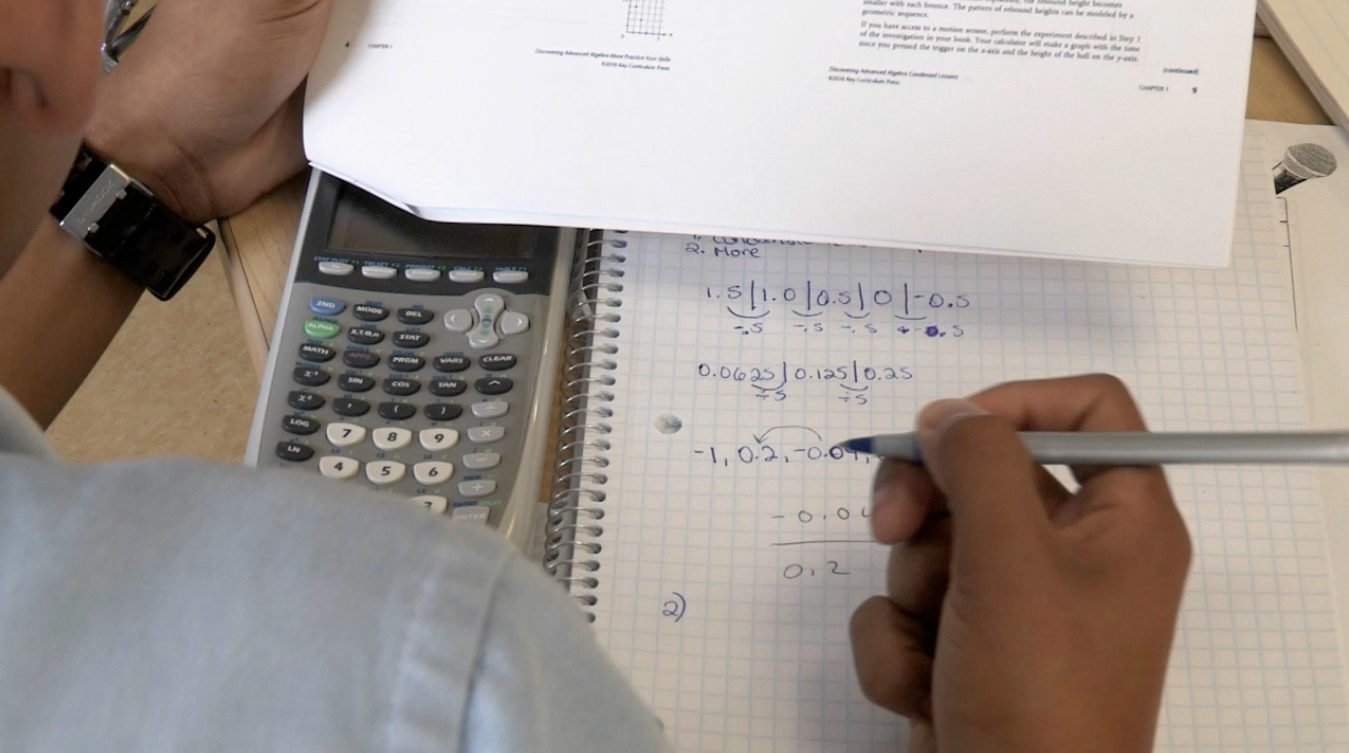 smaller with each bounce. The pattern of rebound heights can be modeled by a
geometric sequence.
If you have access to a motion sensor, perform the experiment described in Step 1
of the investigation in your book. Your calculator will make a graph with the time
since you pressed the trigger on the x-axis and the height of the ball on the y-axis.
(continued)
CHAPTER 1
Discovering Advanced Algebra More Practice Your Skills
©2010 Key Curriculum Press
Discovering Advanced Algebra Condensed Lessons
©2010 Key Curriculum Press
CHAPTER 1 9
2. More
1.5|1.0|0.5|0|-0.5
-.5 -.5 -.5 -.5
0.0625|0.125|0.25
÷5 ÷5
-1, 0.2, -0.04,
-0.04
0.2
2)
STAT PLOT F1 TBLSET F2 FORMAT F3 CALC F4 TABLE F5
2ND MODE DEL
ALPHA X,T,θ,n STAT
MATH APPS PRGM VARS CLEAR
X⁻¹ SIN COS TAN ^
X² , ( )
LOG 7 8 9 ×
LN 4 5 6
3 +
ENTER